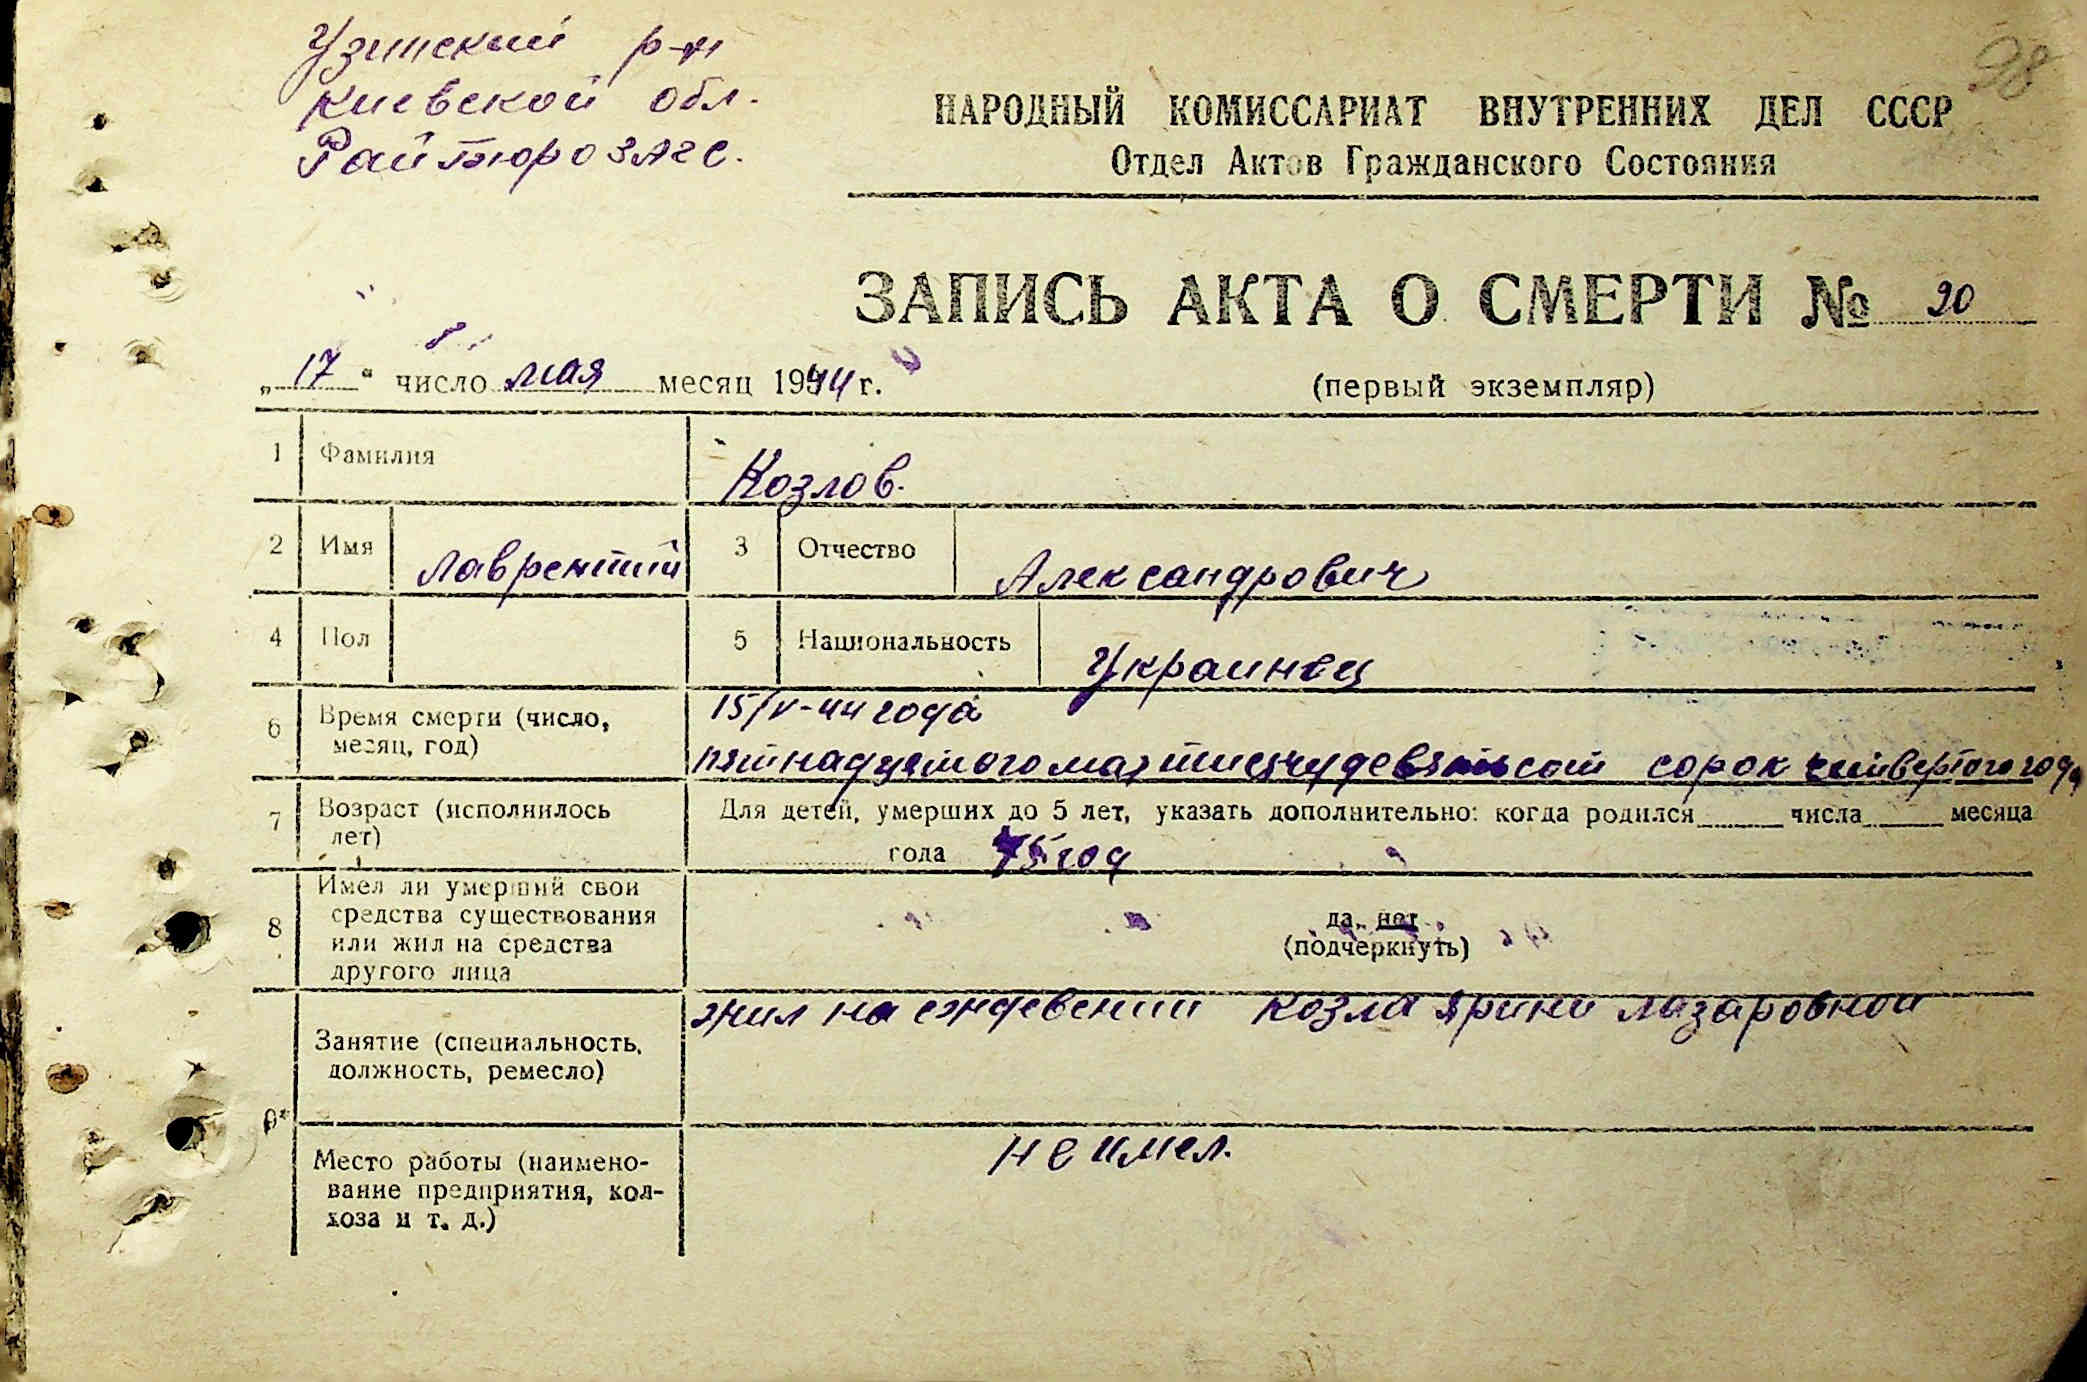 Узинский р-н
98
Киевской обл.
Райбюро загс.
НАРОДНЫЙ КОМИССАРИАТ ВНУТРЕННИХ ДЕЛ СССР
Отдел Актов Гражданского Состояния
ЗАПИСЬ АКТА О СМЕРТИ № 20
„17" число мая месяц 1944 г.
(первый экземпляр)
1 Фамилия Козлов.
2 Имя Лаврентий 3 Отчество Александрович
4 Пол 5 Национальность Украинец
6 Время смерти (число, месяц, год)
15/V-44 года
пятнадцятого мая тисячу девятьсот сорок четвертого года
7 Возраст (исполнилось лет)
Для детей, умерших до 5 лет, указать дополнительно: когда родился числа месяца
года 75 год
8 Имел ли умерший свои
средства существования
или жил на средства
другого лица
да, нет
(подчеркнуть)
9*
Занятие (специальность,
должность, ремесло)
жил на еждевении Козла Ярини Лазаровной
Место работы (наимено-
вание предприятия, кол-
хоза и т. д.)
не имел.